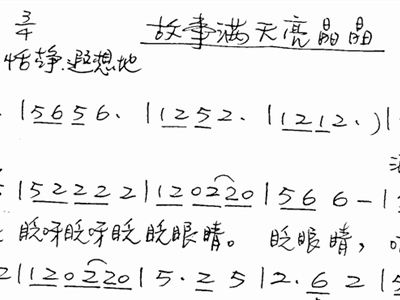 3/4 故事满天亮晶晶
恬静.遐想地
. |5 6 5 6 . |1 2 5 2 . |1 2 1 2 . )|
|5 2 2 2 2|1 2 0 2 2 0|5 6 6 -|
眨呀眨呀眨 眨眼睛。 眨眼睛,
2|1 2 0 2 2 0|5 . 2 5|2 . 6 2|5